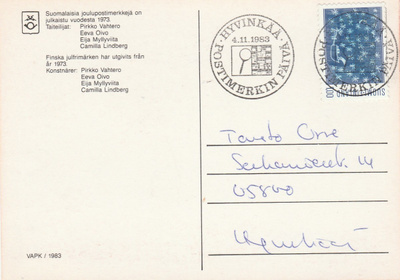 Suomalaisia joulupostimerkkejä on
julkaistu vuodesta 1973
Taiteilijat: Pirkko Vahtero
Eeva Oivo
Eija Myllyviita
Camilla Lindberg
Finska julfrimärken har utgivits från
år 1973.
Konstnärer: Pirkko Vahtero
Eeva Oivo
Eija Myllyviita
Camilla Lindberg
HYVINKÄÄ
4.11.1983
POSTIMERKIN PÄIVÄ
POSTIMERKIN PÄIVÄ
SUOMI FINLAND
05800
VAPK / 1983